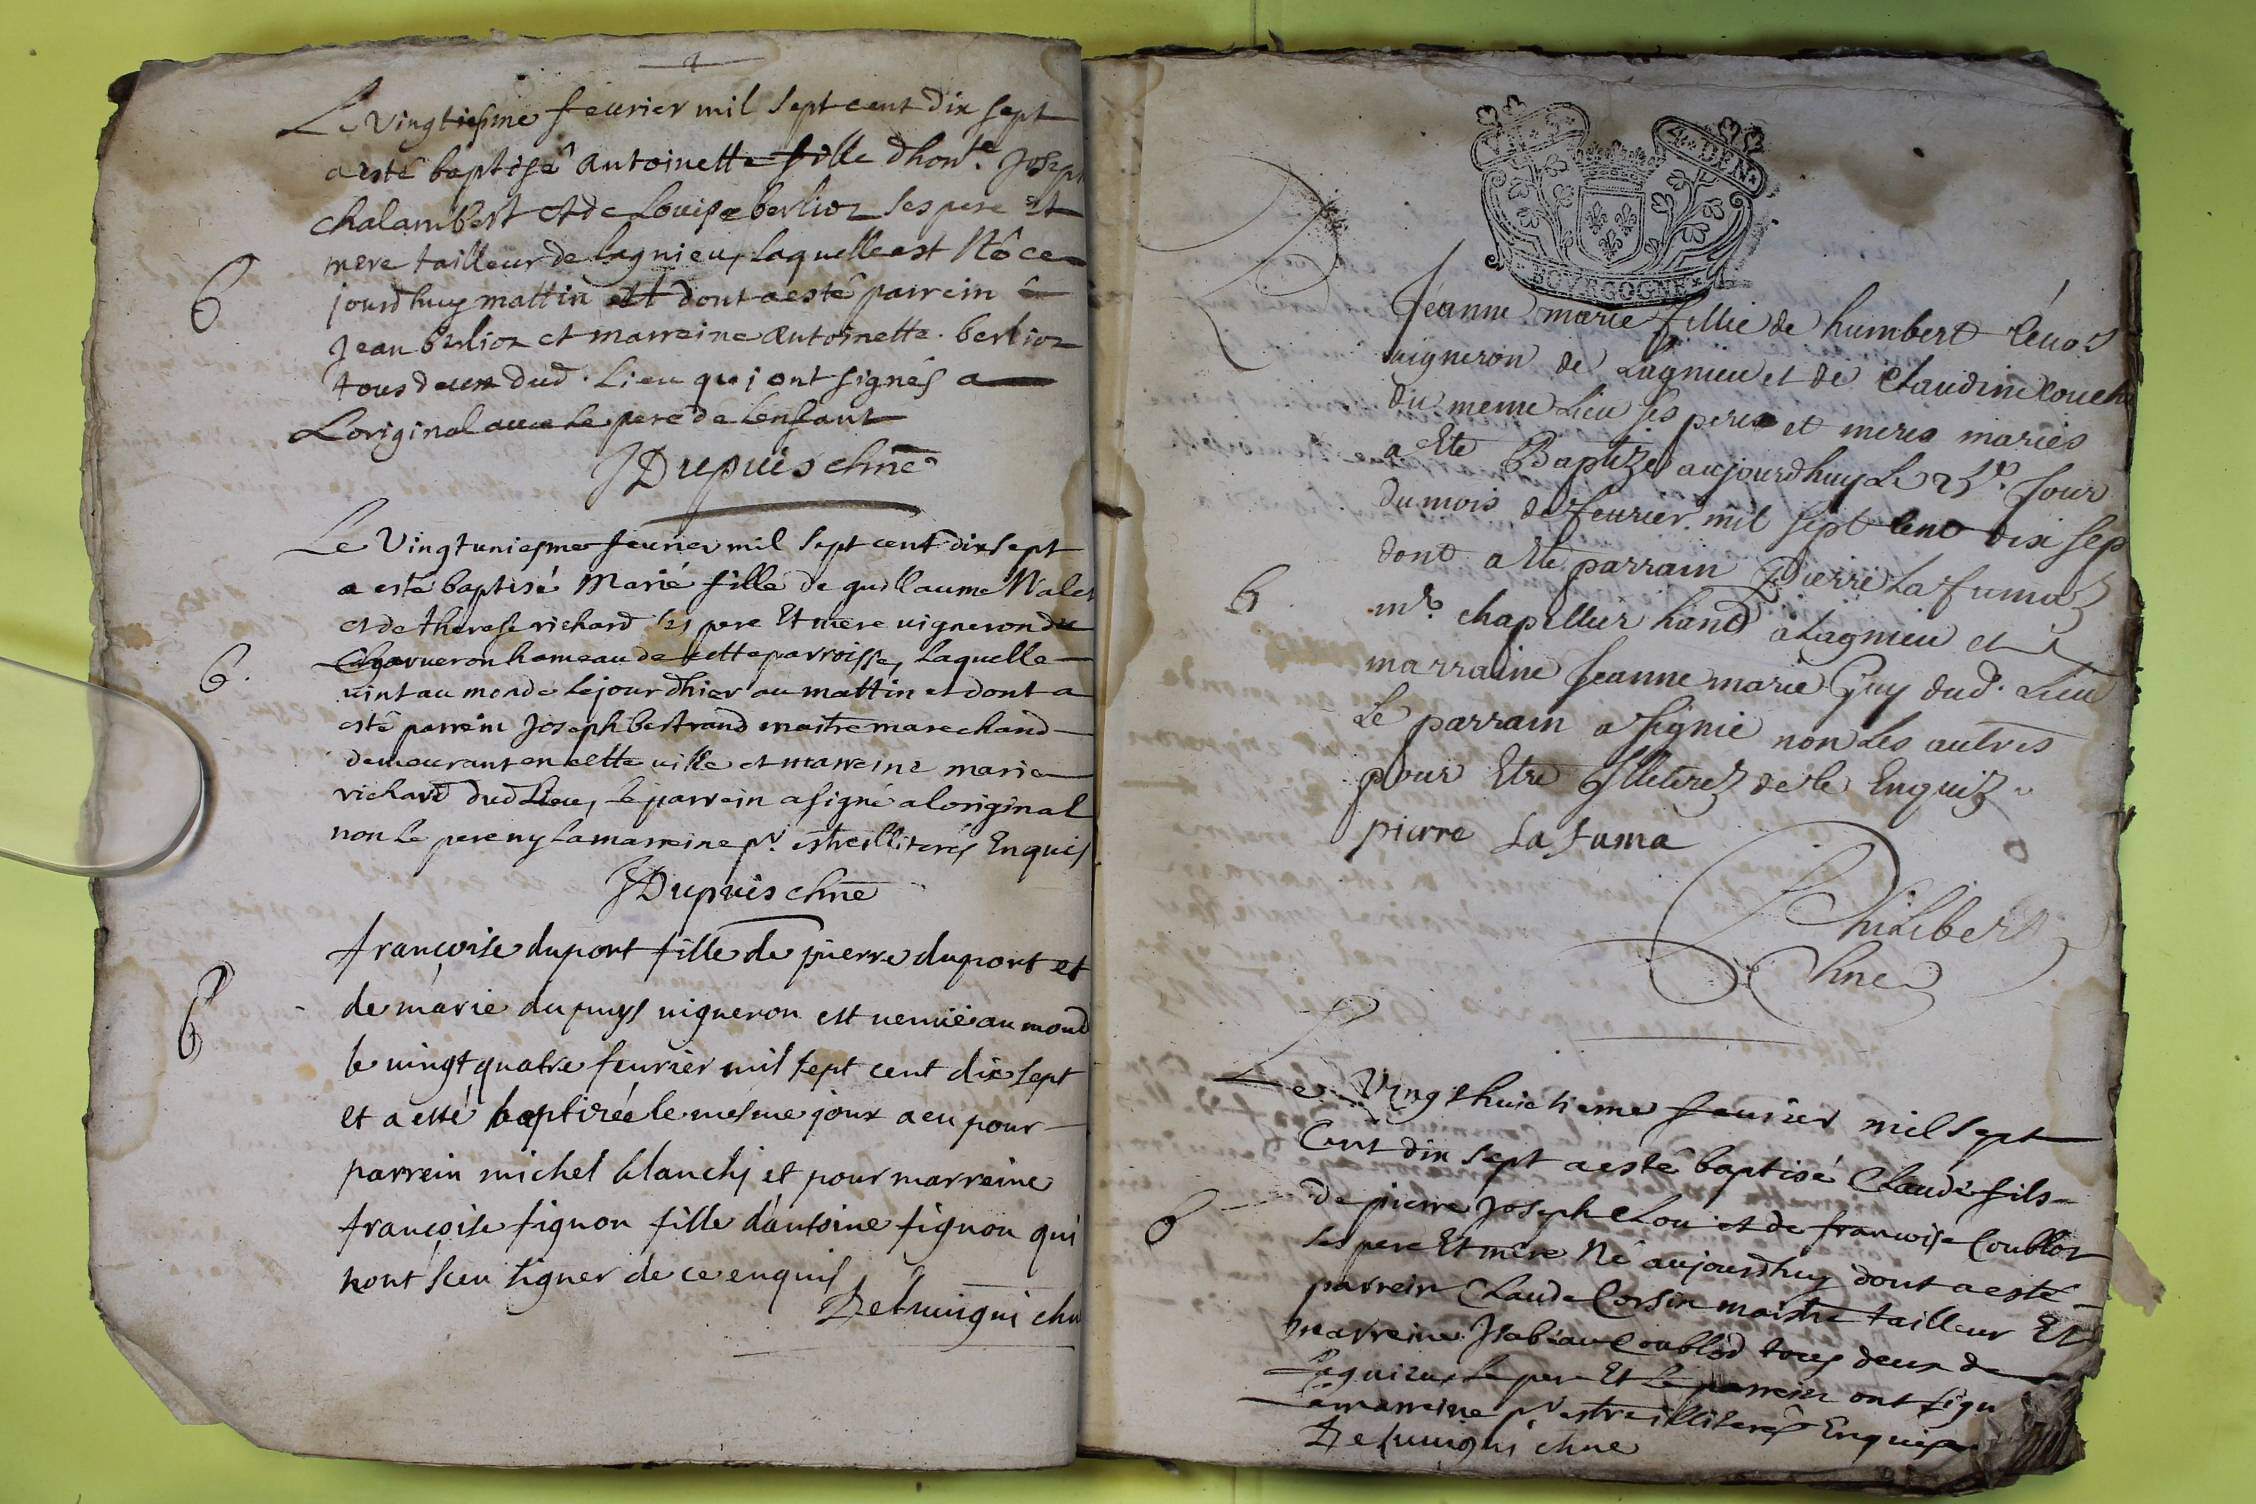 Le vingtiesme feurier mil sept cent dix sept
a esté baptisé antoinette fille dhon.te Joseph
chalambert et de Louise berlioz ses pere et
mere tailleur de lagnieu, laquelle est Née ce
jourdhuy mattin et dont a esté parrein
Jean berlioz et marreine antoinette berlioz
tous deux dud. Lieu qui ont signés a
Loriginal auec le pere de lenfant
JDupuis chne
Le Vingtuniesme feurier mil sept cent dix sept
a esté baptisé Marié fille de guillaume
et de therese richard ses pere Et mere uigneron de
Charueron hameau de cette parroisse, laquelle
uint au monde le jour dhier au mattin et dont a
esté parrein Joseph bertrand maitre marechand
demeurant en cette uille et marreine marie
richard dud Lieu, le parrein a signé a loriginal
non le pere ny la marreine pr. estre illiterés Enquis
JDupuis chne
françoise duport fille de pierre duport et
de marie dupuys uigneron est uenue au mond
le uingt quatre feurier mil sept cent dix sept
et a esté baptizée le mesme jour a eu pour
parrein michel blanchi et pour marreine
françoise fignon fille d'antoine fignon qui
nont sceu signer de ce enquis
chn
VN 4. DEN.
BOVRGOGNE
Jeanne marie fillie de humbert
uigneron de Lagnieu et de Claudine
du meme Lieu ses peres et meres mariés
a Ete Baptizé aujourdhuy Le Jour
du mois de feurier mil sept Cent dix sep
dont a Ete parrain Pierre La fuma
mr. chapellier hand a Lagnieu et
marraine Jeanne marie Guy dud. Lieu
Le parrain a signié non les autres
pour Etre Illiterez de ce Enquiz
pierre La fuma
Philibert
Chne
Le Vingt huictieme feurier mil sept
Cent dix sept a esté baptisé Claude fils
de pierre Joseph et de francoise Coublot
ses pere Et mere Né aujourdhuy dont a esté
parrein Claude Corsin maistre tailleur Et
marreine Isabeau Coublod tous deux de
Lagnieu, Le pere Et Le parrein ont sign
La marreine pr estre illiterés Enquis
chne